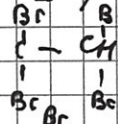 Br B
C - CH
Br Br
Br